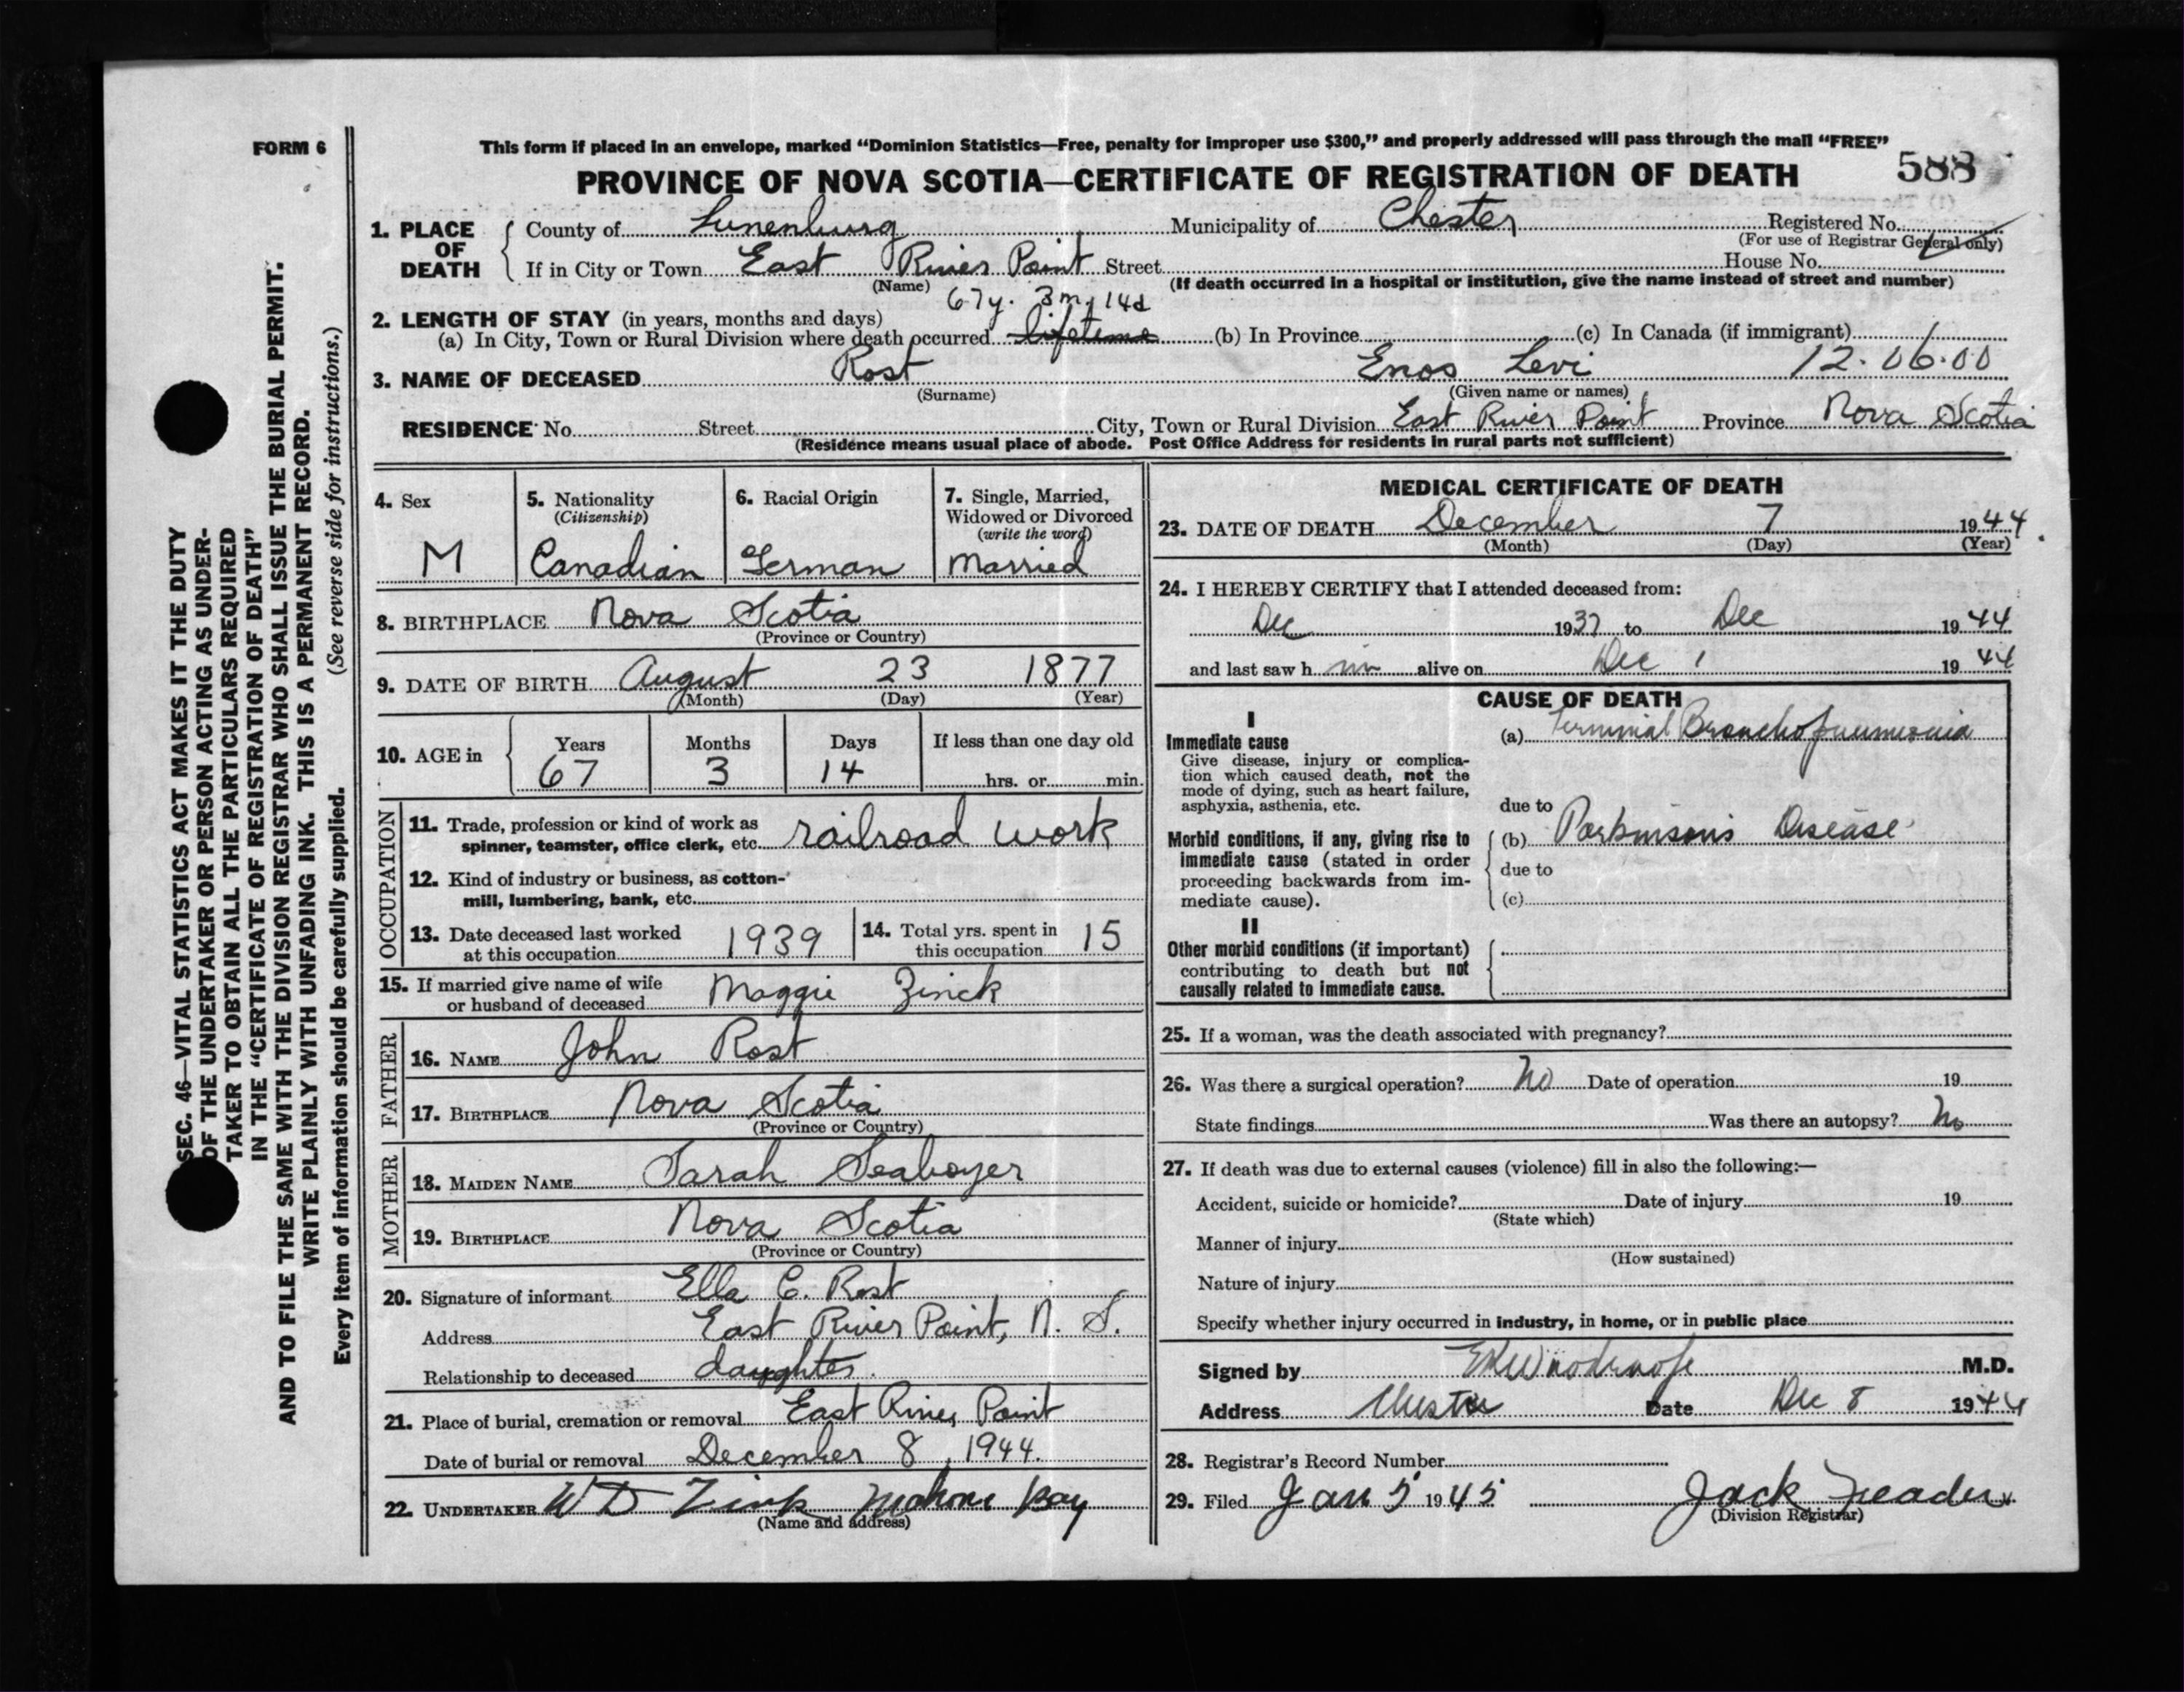 FORM 6
This form if placed in an envelope, marked “Dominion Statistics—Free, penalty for improper use $300,” and properly addressed will pass through the mail “FREE”
PROVINCE OF NOVA SCOTIA—CERTIFICATE OF REGISTRATION OF DEATH
588
1. PLACE OF DEATH
County of Lunenburg Municipality of Chester Registered No.
(For use of Registrar General only)
If in City or Town East River Point Street House No.
(Name) (If death occurred in a hospital or institution, give the name instead of street and number)
67y. 3m, 14d
2. LENGTH OF STAY (in years, months and days)
(a) In City, Town or Rural Division where death occurred lifetime (b) In Province (c) In Canada (if immigrant)
3. NAME OF DECEASED Rost Enos Levi 12.06.00
(Surname) (Given name or names)
RESIDENCE No. Street City, Town or Rural Division East River Point Province Nova Scotia
(Residence means usual place of abode. Post Office Address for residents in rural parts not sufficient)
4. Sex
M
5. Nationality
(Citizenship)
Canadian
6. Racial Origin
German
7. Single, Married,
Widowed or Divorced
(write the word)
Married
8. BIRTHPLACE Nova Scotia
(Province or Country)
9. DATE OF BIRTH August 23 1877
(Month) (Day) (Year)
10. AGE in
Years Months Days If less than one day old
67 3 14 hrs. or min.
OCCUPATION
11. Trade, profession or kind of work as
spinner, teamster, office clerk, etc. railroad work
12. Kind of industry or business, as cotton-
mill, lumbering, bank, etc.
13. Date deceased last worked
at this occupation 1939
14. Total yrs. spent in
this occupation 15
15. If married give name of wife
or husband of deceased Maggie Zinck
FATHER
16. NAME John Rost
17. BIRTHPLACE Nova Scotia
(Province or Country)
MOTHER
18. MAIDEN NAME Sarah Seaboyer
19. BIRTHPLACE Nova Scotia
(Province or Country)
20. Signature of informant Ella C. Rost
Address East River Point, N. S.
Relationship to deceased daughter.
21. Place of burial, cremation or removal East River Point
Date of burial or removal December 8, 1944.
22. UNDERTAKER W D Zink Mahone Bay
(Name and address)
MEDICAL CERTIFICATE OF DEATH
23. DATE OF DEATH December 7 1944
(Month) (Day) (Year)
24. I HEREBY CERTIFY that I attended deceased from:
Dec 1937 to Dec 1944
and last saw h im alive on Dec 1 1944
CAUSE OF DEATH
I
Immediate cause
Give disease, injury or complica-
tion which caused death, not the
mode of dying, such as heart failure,
asphyxia, asthenia, etc.
(a) Terminal Bronchopneumonia
due to
Morbid conditions, if any, giving rise to
immediate cause (stated in order
proceeding backwards from im-
mediate cause).
(b) Parkinsons Disease
due to
(c)
II
Other morbid conditions (if important)
contributing to death but not
causally related to immediate cause.
25. If a woman, was the death associated with pregnancy?
26. Was there a surgical operation? No Date of operation 19
State findings Was there an autopsy? No
27. If death was due to external causes (violence) fill in also the following:—
Accident, suicide or homicide? Date of injury 19
(State which)
Manner of injury
(How sustained)
Nature of injury
Specify whether injury occurred in industry, in home, or in public place
Signed by M.D.
Address Chester Date Dec 8 1944
28. Registrar's Record Number
29. Filed Jan 5 1945 Jack
(Division Registrar)
SEC. 46—VITAL STATISTICS ACT MAKES IT THE DUTY
OF THE UNDERTAKER OR PERSON ACTING AS UNDER-
TAKER TO OBTAIN ALL THE PARTICULARS REQUIRED
IN THE “CERTIFICATE OF REGISTRATION OF DEATH”
AND TO FILE THE SAME WITH THE DIVISION REGISTRAR WHO SHALL ISSUE THE BURIAL PERMIT.
WRITE PLAINLY WITH UNFADING INK. THIS IS A PERMANENT RECORD.
Every item of information should be carefully supplied. (See reverse side for instructions.)